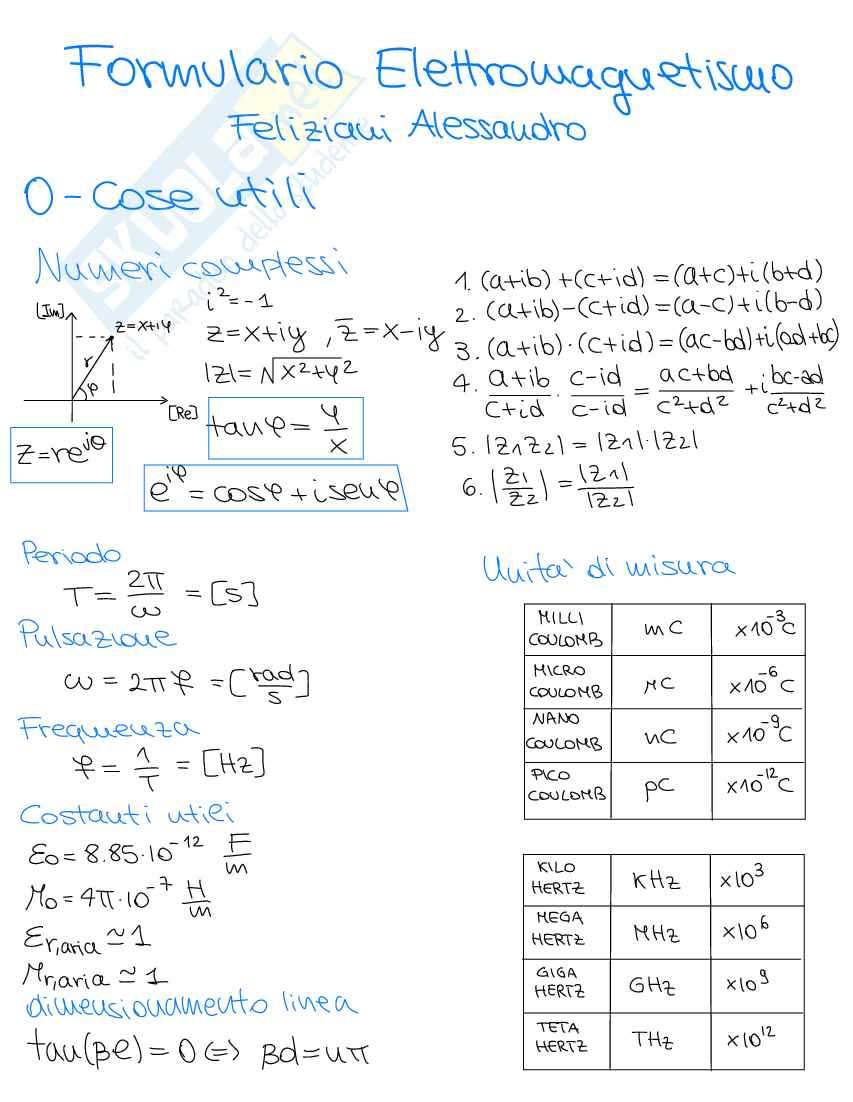 Formulario Elettromagnetismo
Feliziani Alessandro
SKUOLA.net
il paradiso dello studente
0 - Cose utili
Numeri complessi
[Im]
z=x+iy
r
φ
[Re]
z=re^{jθ}
i²=-1
z=x+iy , z̄=x-iy
|z|=√(x²+y²)
tanφ = y/x
e^{iφ} = cosφ + i senφ
1. (a+ib)+(c+id)=(a+c)+i(b+d)
2. (a+ib)-(c+id)=(a-c)+i(b-d)
3. (a+ib)·(c+id)=(ac-bd)+i(ad+bc)
4. (a+ib)/(c+id) · (c-id)/(c-id) = (ac+bd)/(c²+d²) + i (bc-ad)/(c²+d²)
5. |z1z2| = |z1|·|z2|
6. |z1/z2| = |z1|/|z2|
Periodo
T = 2π/ω = [s]
Pulsazione
ω = 2πf = [rad/s]
Frequenza
f = 1/T = [Hz]
Costanti utili
ε0 = 8.85·10^{-12} F/m
μ0 = 4π·10^{-7} H/m
εr,aria ≃ 1
μr,aria ≃ 1
dimensionamento linea
tan(βl) = 0 ⇔ βd = nπ
Unita` di misura
MILLI COULOMB mC x10^{-3}C
MICRO COULOMB μC x10^{-6}C
NANO COULOMB nC x10^{-9}C
PICO COULOMB pC x10^{-12}C
KILO HERTZ KHz x10³
MEGA HERTZ MHz x10⁶
GIGA HERTZ GHz x10⁹
TETA HERTZ THz x10¹²